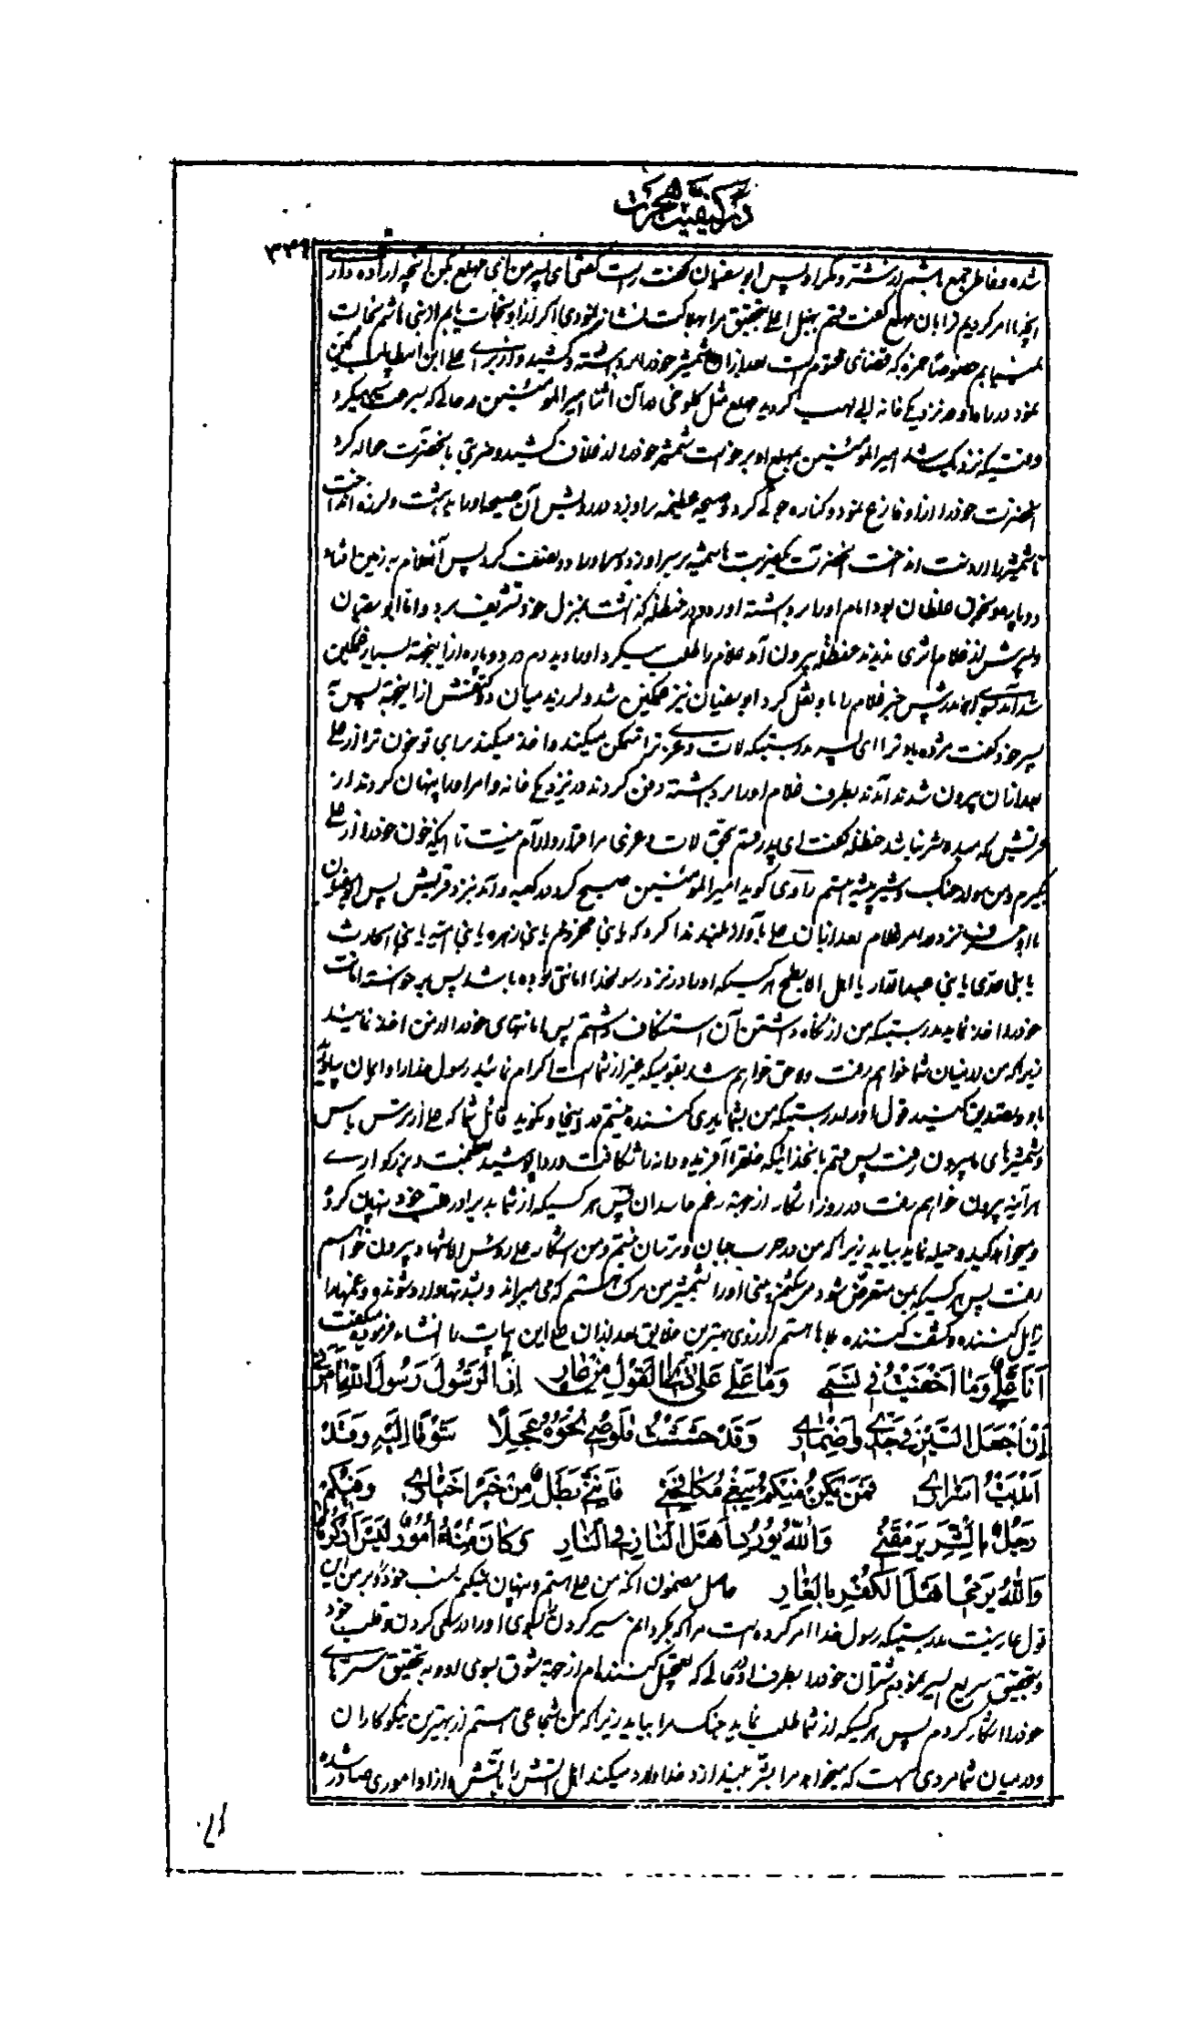 در کیفیت هجرت
۳۴۹
شده و خاطر جمع باشم از نشتر و مکر او پس ابوسفیان گفت راست گفتی ای پسر من ای مهلع بکن آنچه اراده داری
آنچه ما امر کردیم ترا بآن مهلع گفت قسم بهبل اعلی بتحقیق مرا بهلاکت نشانه نمودی اگر از او نجات یابم از بنی هاشم نجات
نمییابم خصوصاً حمزه که قضای محتوم است بعد از آن شمشیر خود را برداشته و کشید و از برای علی ابن ابیطالب کمین
نمود در راه او در نزدیکی خانه ابی لهب کردید مهلع مثل کلوخی در آن اثنا امیرالمؤمنین در حالی که بسرعت سیر میکرد
وقتیکه نزدیک شد امیرالمؤمنین بمهلع او برخواست شمشیر خود را از غلاف کشید و ضربتی بآنحضرت حواله کرد
آنحضرت خود را از او فارغ نمود و کناره جوئی کرد و صیحه عظیمه بر او زد در دلش آن صیحه او را بدهشت و لرزه انداخت
تا شمشیر را از دست انداخت آنحضرت یکضربت با شمشیر بر سر او زد و سر او را دو نصف کرد پس آنغلام بر زمین افتاد
دو پاره و غرق خلطان بود امام او را برداشته آورد در حنظله گذاشت بمنزل خود تشریف برد و اما ابوسفیان
و پسرش از غلام اثری ندیدند حنظله بیرون آمد غلام را طلب میکرد او را دید دم در دو پاره از اینجهة بسیار غمگین
شد آمد بسوی پدرش خبر غلام را باو نقل کرد ابوسفیان نیز غمگین شد و لرزید میان دو کتفش از اینجهة پس به
پسر خود گفت مژده باد ترا ای پسر بدرستیکه لات و عزی ترا متمکن میکند و اخذ میکند برای تو خون ترا از علی
بعد از آن بیرون شدند آمدند بطرف غلام او را برداشته دفن کردند در نزدیکی خانه و امر او را پنهان کردند از
قریش که مبادا شر نباشد حنظله گفت ای پدر قسم بحق لات و عزی مرا قرار و آرام نیست تا اینکه خون خود را از علی
بگیرم و من مولد جنک و شیر بیشه هستم راوی گوید امیرالمؤمنین صبح کرد در کعبه در آمد نزد قریش پس ابوسفیان
با او حرف نزد در امر غلام بعد از آن علی بآواز بلند ندا کرد که یا بنی مخزوم یا بنی زهره یا بنی امیه یا بنی الحارث
یا بنی عدی یا بنی عبدالدار یا اهل الابطح هر کسیکه او را در نزد رسولخدا امانتی بوده باشد پس برخواسته امانت
خود را اخذ نماید بدرستیکه من از نگاه داشتن آن استنکاف داشتم پس امانتهای خود را از من اخذ نمائید
زیرا که من از میان شما خواهم رفت و ملحق خواهم شد بقومیکه غیر از شما است اکرام نمائید رسول خدا را و ایمان بیاورید
باو و تصدیق کنید قول او را بدرستیکه من بشما یاری کننده نیستم در اینجا و نگوید قائل شما که علی از ترس باس
و شمشیرهای ما بیرون رفت پس قسم بآنخدائیکه خلق را آفریده و دانه را شکافت و ردا پوشید بعظمت و بزرگواری
هر آینه بیرون خواهم رفت در روز آشکار از جهة رغم حاسدان پس هر کسیکه از شما بدی را در قلب خود پنهان کرد
و میخواهد کید و حیله نماید بیاید زیرا که من در حرب جبان و ترسان نیستم و من آشکار علی رؤس الاشهاد بیرون خواهم
رفت پس هر کسیکه بمن متعرض شود من میکشم یعنی او را بشمشیر من مرگ هستم که می میراند و بشدتها وارد شونده و غمها را
زایل کننده و کشف کننده بلاها هستم از روی بهترین خلایق بعد از آن علی این ابیات را انشاء فرمود میگفت
اَنَا عَلِیٌّ وَمَا اَخْفَیْتُ فِی نَسَبِی وَمَا عَلَیَّ عَلَى هٰذَا القَوْلِ مِنْ عَارِ اِنَّ الرَّسُولَ رَسُولَ اللهِ اَمَرَنِی
اَنْ اَجْعَلَ السَّیْرَ فِی جَدِّی وَاِضْمَارِی وَقَدْ حَثَثْتُ قَلُوصِی نَحْوَهُ عَجِلًا شَوْقًا اِلَیْهِ وَقَدْ
اَعْلَنْتُ اَسْرَارِی فَمَنْ یَکُنْ مِنْکُمُ یَبْغِی مُکَافَحَتِی فَاِنَّنِی بَطَلٌ مِنْ خَیْرِ اَخْیَارِی وَمِنْکُمْ
رَجُلٌ بِالشَّرِ یَرْمُقُنِی وَاللهُ یُورِدُ اَهْلَ النَّارِ فِی النَّارِ وَکَانَ مِنْهُ اُمُورٌ لَیْسَ اَذْکُرُهَا
وَاللهُ یَرْمِی اَهْلَ الکُفْرِ بِالعَارِ حاصل مضمون آنکه من علی هستم و پنهان نمیکنم نسب خود را و بر من این
قول عار نیست بدرستیکه رسول خدا امر کرده است مرا که بگردانم سیر کردن را بسوی او را در سعی کردن و قلب خود
و بتحقیق سریع السیر نمودم شتران خود را بطرف او در حالی که تعجیل کننده ام از جهة شوق بسوی او و به تحقیق سرهای
خود را آشکار کردم پس هر کسیکه از شما طلب نماید جنک مرا بیاید زیرا که من شجاعی هستم از بهترین نیکوکاران
و در میان شما مردی هست که میخواهد مرا بشر بیندازد خدا وارد میکند اهل آتش را بآتش و از او اموری صادر شده